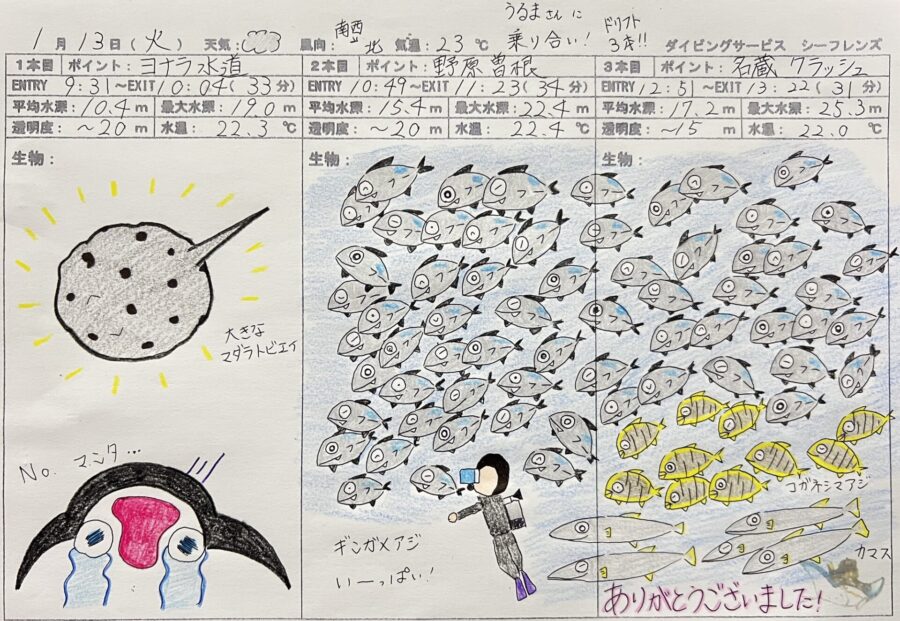 うるまさんに
乗り合い!
ドリフト
3本!!
1月13日(火) 天気: 風向: 南西 北 気温:23℃ ダイビングサービス シーフレンズ
1本目 ポイント: ヨナラ水道
ENTRY 9:31~EXIT 10:04(33分)
平均水深: 10.4m 最大水深: 19.0m
透明度: ~20m 水温: 22.3℃
生物:
大きな
マダラトビエイ
No. マンタ...
2本目 ポイント: 野原曽根
ENTRY 10:49~EXIT 11:23(34分)
平均水深: 15.4m 最大水深: 22.4m
透明度: ~20m 水温: 22.4℃
生物:
ギンガメアジ
いーっぱい!
3本目 ポイント: 名蔵 クラッシュ
ENTRY 12:51~EXIT 13:22(31分)
平均水深: 17.2m 最大水深: 25.3m
透明度: ~15m 水温: 22.0℃
生物:
コガネシマアジ
カマス
ありがとうございました!